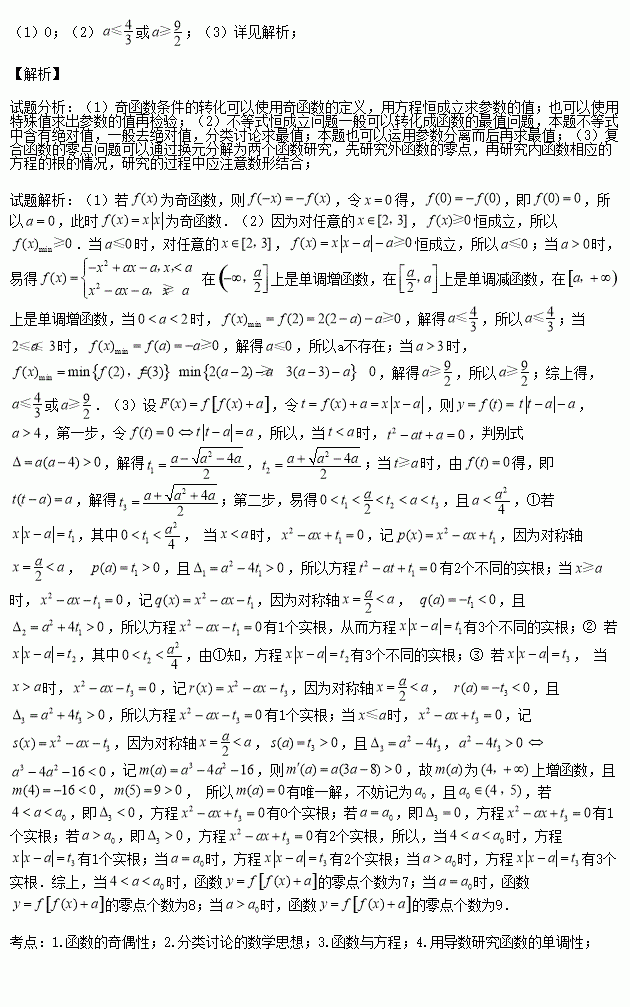 （1）0；（2）a≤4/3或a≥9/2；（3）详见解析；
【解析】
试题分析：（1）奇函数条件的转化可以使用奇函数的定义，用方程恒成立求参数的值；也可以使用
特殊值求出参数的值再检验；（2）不等式恒成立问题一般可以转化成函数的最值问题，本题不等式
中含有绝对值，一般去绝对值，分类讨论求最值；本题也可以运用参数分离而后再求最值；（3）复
合函数的零点问题可以通过换元分解为两个函数研究，先研究外函数的零点，再研究内函数相应的
方程的根的情况，研究的过程中应注意数形结合；
试题解析：（1）若f(x)为奇函数，则f(−x)=−f(x)，令x=0得，f(0)=−f(0)，即f(0)=0，所
以a=0，此时f(x)=x|x|为奇函数．（2）因为对任意的x∈[2，3]，f(x)≥0恒成立，所以
f(x)min≥0．当a≤0时，对任意的x∈[2，3]，f(x)=x|x−a|−a≥0恒成立，所以a≤0；当a>0时，
易得f(x)={−x²+ax−a，x<a x²−ax−a，x≥a 在(−∞，a/2]上是单调增函数，在[a/2，a]上是单调减函数，在[a，+∞)
上是单调增函数，当0<a<2时，f(x)min=f(2)=2(2−a)−a≥0，解得a≤4/3，所以a≤4/3；当
2≤a≤3时，f(x)min=f(a)=−a≥0，解得a≤0，所以a不存在；当a>3时，
f(x)min=min{f(2)，f(3)}=min{2(a−2)−a，3(a−3)−a}≥0，解得a≥9/2，所以a≥9/2；综上得，
a≤4/3或a≥9/2．（3）设F(x)=f[f(x)+a]，令t=f(x)+a=x|x−a|，则y=f(t)=t|t−a|−a，
a>4，第一步，令f(t)=0⇔t|t−a|=a，所以，当t<a时，t²−at+a=0，判别式
Δ=a(a−4)>0，解得t₁=(a−√(a²−4a))/2，t₂=(a+√(a²−4a))/2；当t≥a时，由f(t)=0得，即
t(t−a)=a，解得t₃=(a+√(a²+4a))/2；第二步，易得0<t₁<a/2<t₂<a<t₃，且a<a²/4，①若
x|x−a|=t₁，其中0<t₁<a²/4， 当x<a时，x²−ax+t₁=0，记p(x)=x²−ax+t₁，因为对称轴
x=a/2<a， p(a)=t₁>0，且Δ₁=a²−4t₁>0，所以方程t²−at+t₁=0有2个不同的实根；当x≥a
时，x²−ax−t₁=0，记q(x)=x²−ax−t₁，因为对称轴x=a/2<a， q(a)=−t₁<0，且
Δ₂=a²+4t₁>0，所以方程x²−ax−t₁=0有1个实根，从而方程x|x−a|=t₁有3个不同的实根；② 若
x|x−a|=t₂，其中0<t₂<a²/4，由①知，方程x|x−a|=t₂有3个不同的实根；③ 若x|x−a|=t₃， 当
x>a时，x²−ax−t₃=0，记r(x)=x²−ax−t₃，因为对称轴x=a/2<a， r(a)=−t₃<0，且
Δ₃=a²+4t₃>0，所以方程x²−ax−t₃=0有1个实根；当x≤a时，x²−ax+t₃=0，记
s(x)=x²−ax−t₃，因为对称轴x=a/2<a，s(a)=t₃>0，且Δ₃=a²−4t₃，a²−4t₃>0⇔
a³−4a²−16<0，记m(a)=a³−4a²−16，则m′(a)=a(3a−8)>0，故m(a)为(4，+∞)上增函数，且
m(4)=−16<0，m(5)=9>0， 所以m(a)=0有唯一解，不妨记为a₀，且a₀∈(4，5)，若
4<a<a₀，即Δ₃<0，方程x²−ax+t₃=0有0个实根；若a=a₀，即Δ₃=0，方程x²−ax+t₃=0有1
个实根；若a>a₀，即Δ₃>0，方程x²−ax+t₃=0有2个实根，所以，当4<a<a₀时，方程
x|x−a|=t₃有1个实根；当a=a₀时，方程x|x−a|=t₃有2个实根；当a>a₀时，方程x|x−a|=t₃有3个
实根．综上，当4<a<a₀时，函数y=f[f(x)+a]的零点个数为7；当a=a₀时，函数
y=f[f(x)+a]的零点个数为8；当a>a₀时，函数y=f[f(x)+a]的零点个数为9．
考点：1.函数的奇偶性；2.分类讨论的数学思想；3.函数与方程；4.用导数研究函数的单调性；